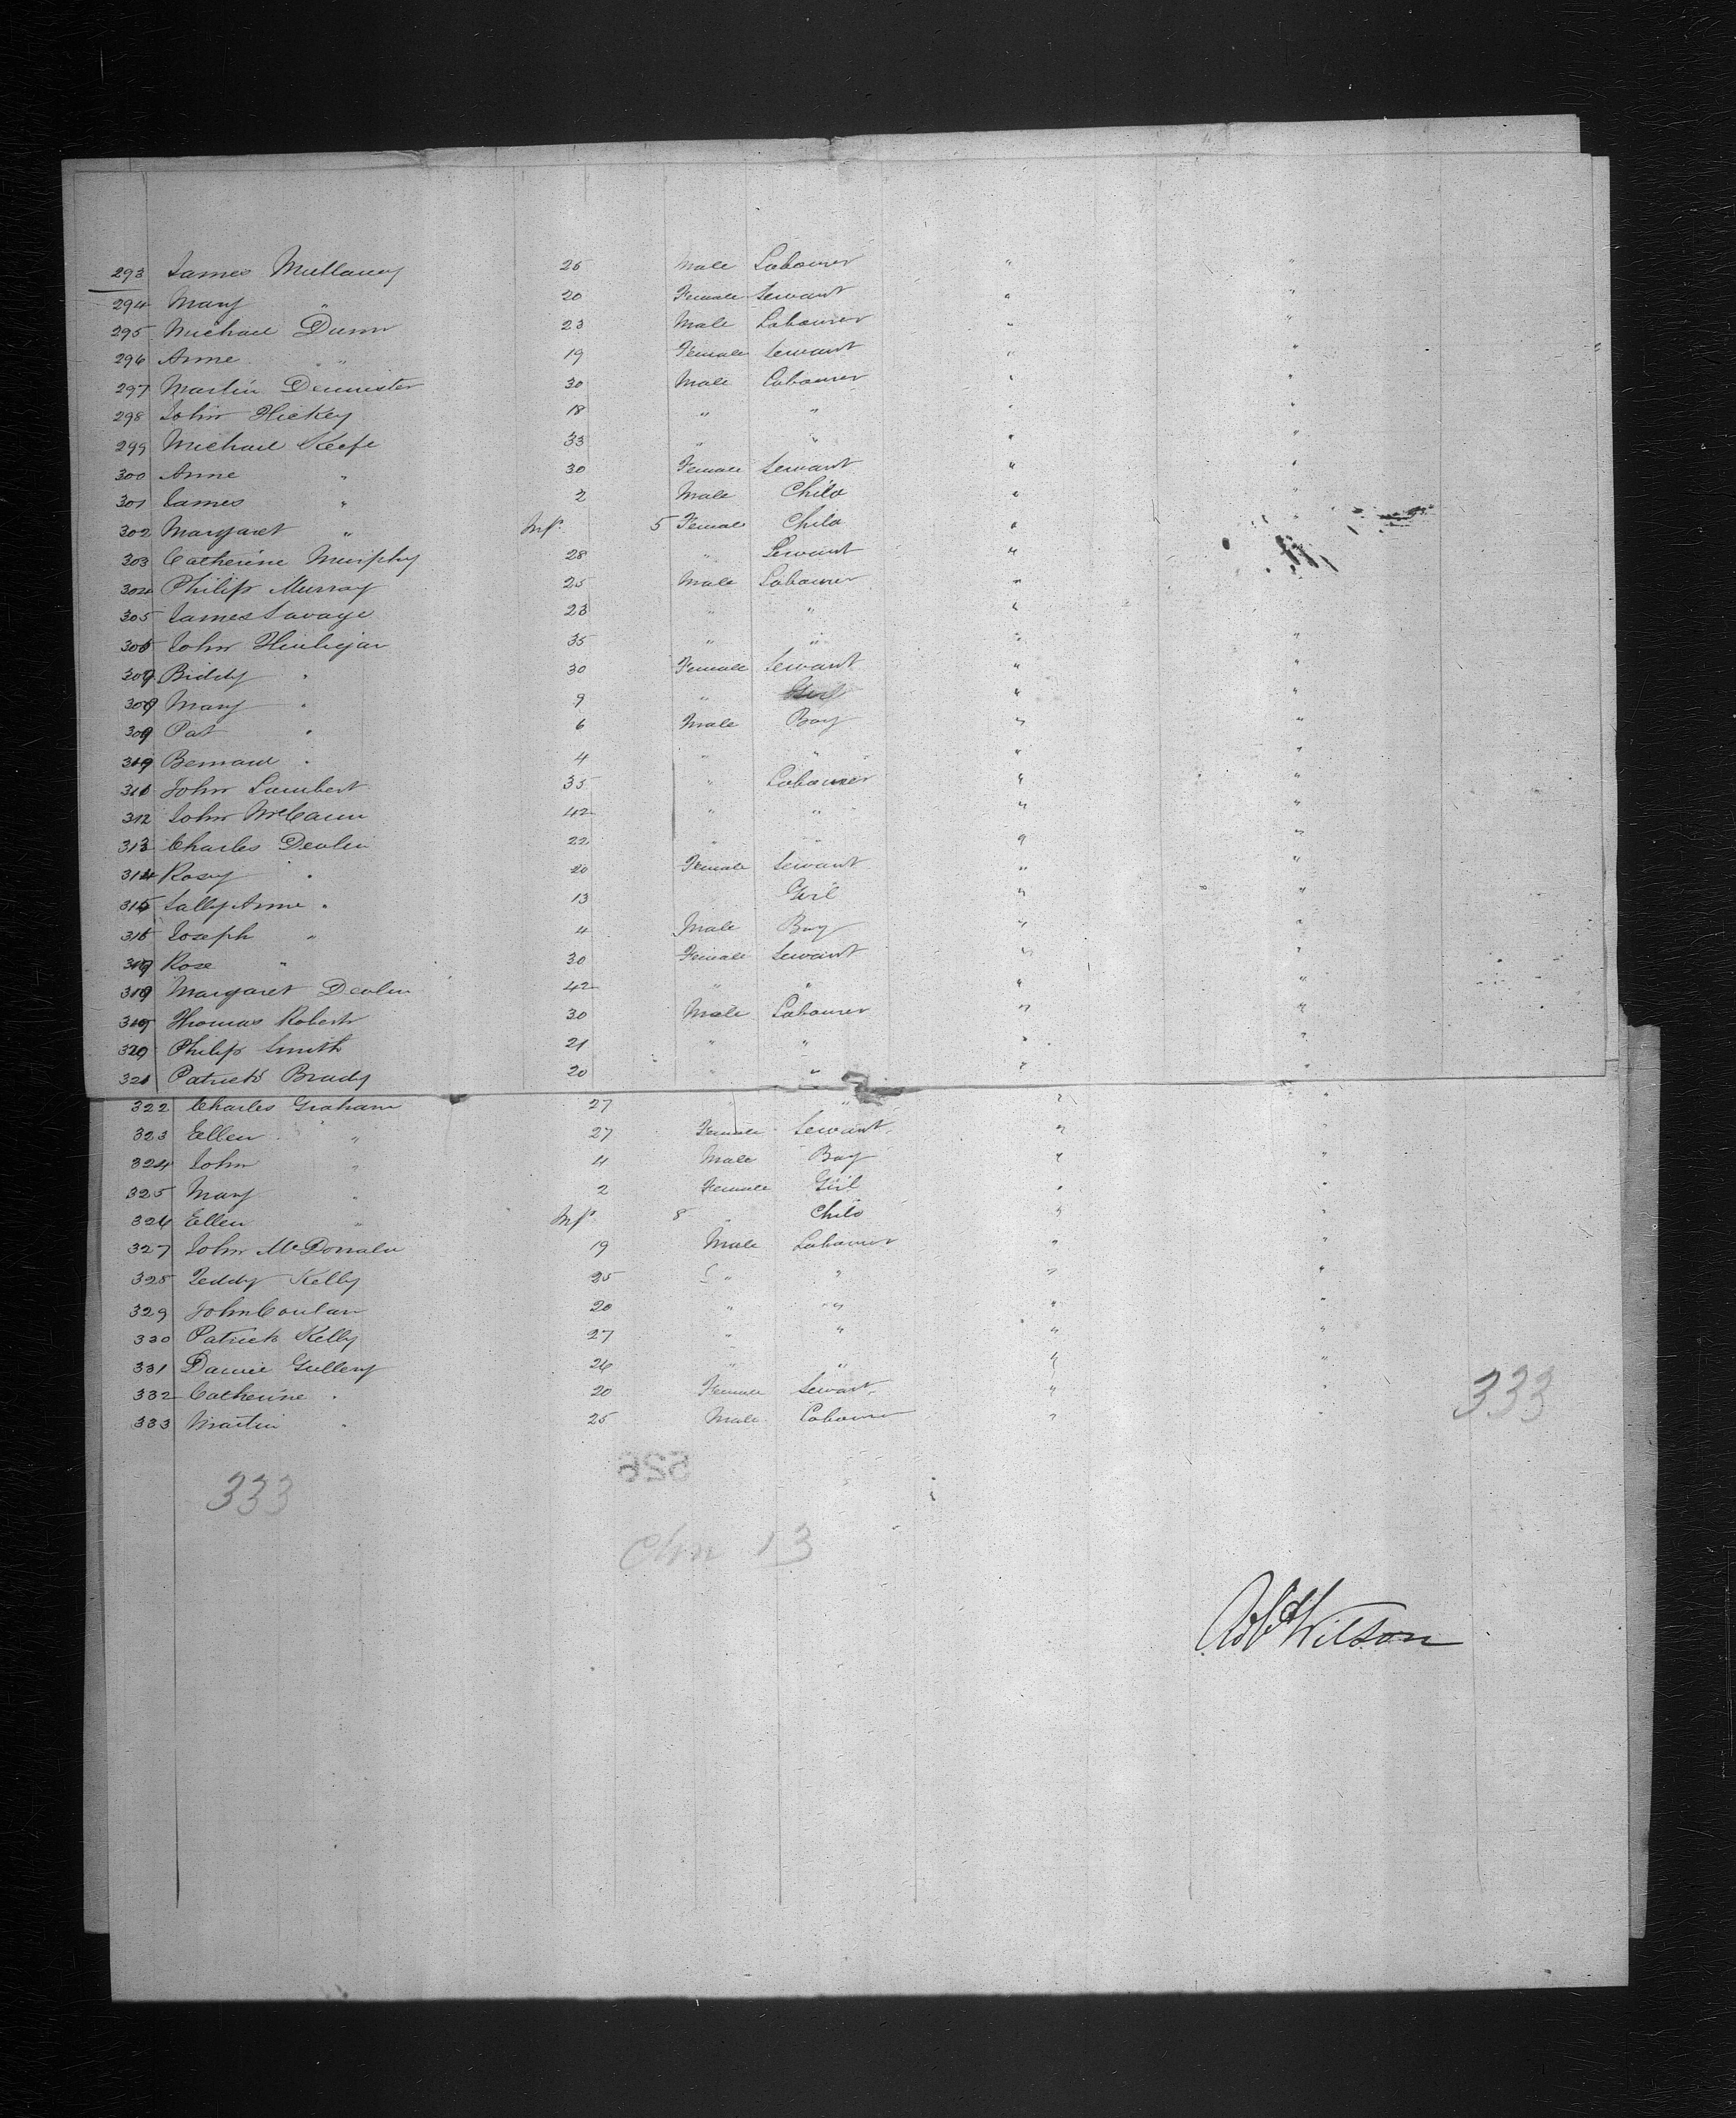 293 James Mullaney 25 Male Labourer " "
294 Mary " 20 Female Servant " "
295 Michael Dunn 23 Male Labourer " "
296 Anne " 19 Female Servant " "
297 Martin Dennister 30 Male Labourer " "
298 John Hickey 18 " " " "
299 Michael Keefe 33 " " " "
300 Anne " 30 Female Servant " "
301 James " 2 Male Child " "
302 Margaret " Inft 5 Female Child " "
303 Catherine Murphy 28 " Servant "
304 Philip Murray 25 Male Labourer "
305 James Savage 23 " " "
306 John 35 " " " "
307 Biddy " 30 Female Servant " "
308 Mary " 9 " Girl " "
309 Pat " 6 Male Boy " "
310 Bernard " 4 " " " "
311 John Lambert 35 " Labourer " "
312 John McCann 42 " " " "
313 Charles Devlin 22 " " " "
314 Rosey " 20 Female Servant " "
315 Sally Anne " 13 Girl " "
316 Joseph " 4 Male Boy " "
317 Rose " 30 Female Servant " "
318 Margaret Devlin 42 " " " "
319 Thomas Roberts 30 Male Labourer " "
320 Philip Smith 21 " " " "
321 Patrick Brady 20 " " " "
322 Charles Graham 27 " " " "
323 Ellen " 27 Female Servant " "
324 John " 4 Male Boy " "
325 Mary " 2 Female Girl " "
326 Ellen " Inft 8 " Child " "
327 John McDonald 19 Male Labourer " "
328 Teddy Kelly 25 " " " "
329 John Conlan 20 " " " "
330 Patrick Kelly 27 " " " "
331 Daniel Gullery 26 " " " "
332 Catherine " 20 Female Servant " "
333 Martin " 25 Male Labourer " "
333
333
526
Chn 13
Robt Wilson